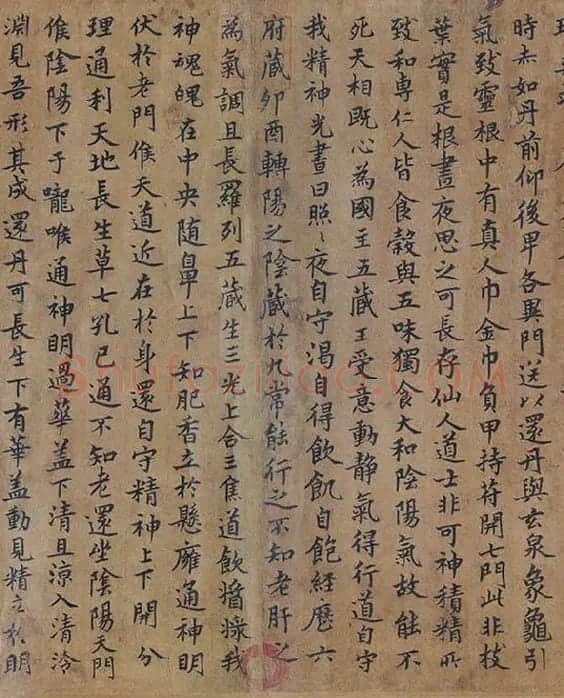 時去如丹前仰後甲各異門送以還丹與玄泉象龜引
氣致靈根中有真人巾金巾負甲持苻開七門此非枝
葉實是根晝夜思之可長存仙人道士非可神積精所
致和專仁人皆食穀與五味獨食大和陰陽氣故能不
死天相既心為國主五藏王受意動靜氣得行道自守
我精神光晝日照〻夜自守渴自得飲飢自飽經歷六
府藏卯酉轉陽之陰藏於九常能行之不知老肝之
為氣調且長羅列五藏生三光上合三焦道飲醬我
神魂魄在中央随鼻上下知肥香立於懸廱通神明
伏於老門候天道近在於身還自守精神上下開分
理通利天地長生草七孔已通不知老還坐陰陽天門
候陰陽下于嚨喉通神明過華盖下清且涼入清泠
淵見吾形其成還丹可長生下有華盖動見精立於明